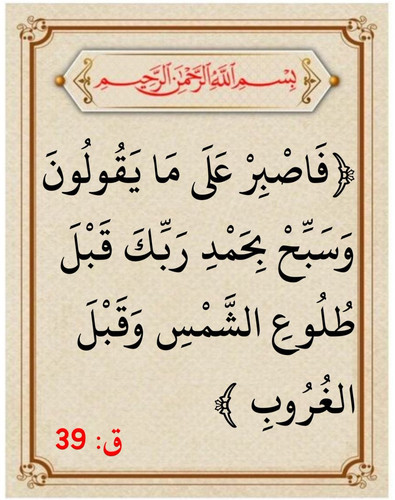 بِسْمِ اللَّهِ الرَّحْمَٰنِ الرَّحِيمِ
﴿فَاصْبِرْ عَلَى مَا يَقُولُونَ
وَسَبِّحْ بِحَمْدِ رَبِّكَ قَبْلَ
طُلُوعِ الشَّمْسِ وَقَبْلَ
الغُرُوبِ ﴾
ق: 39